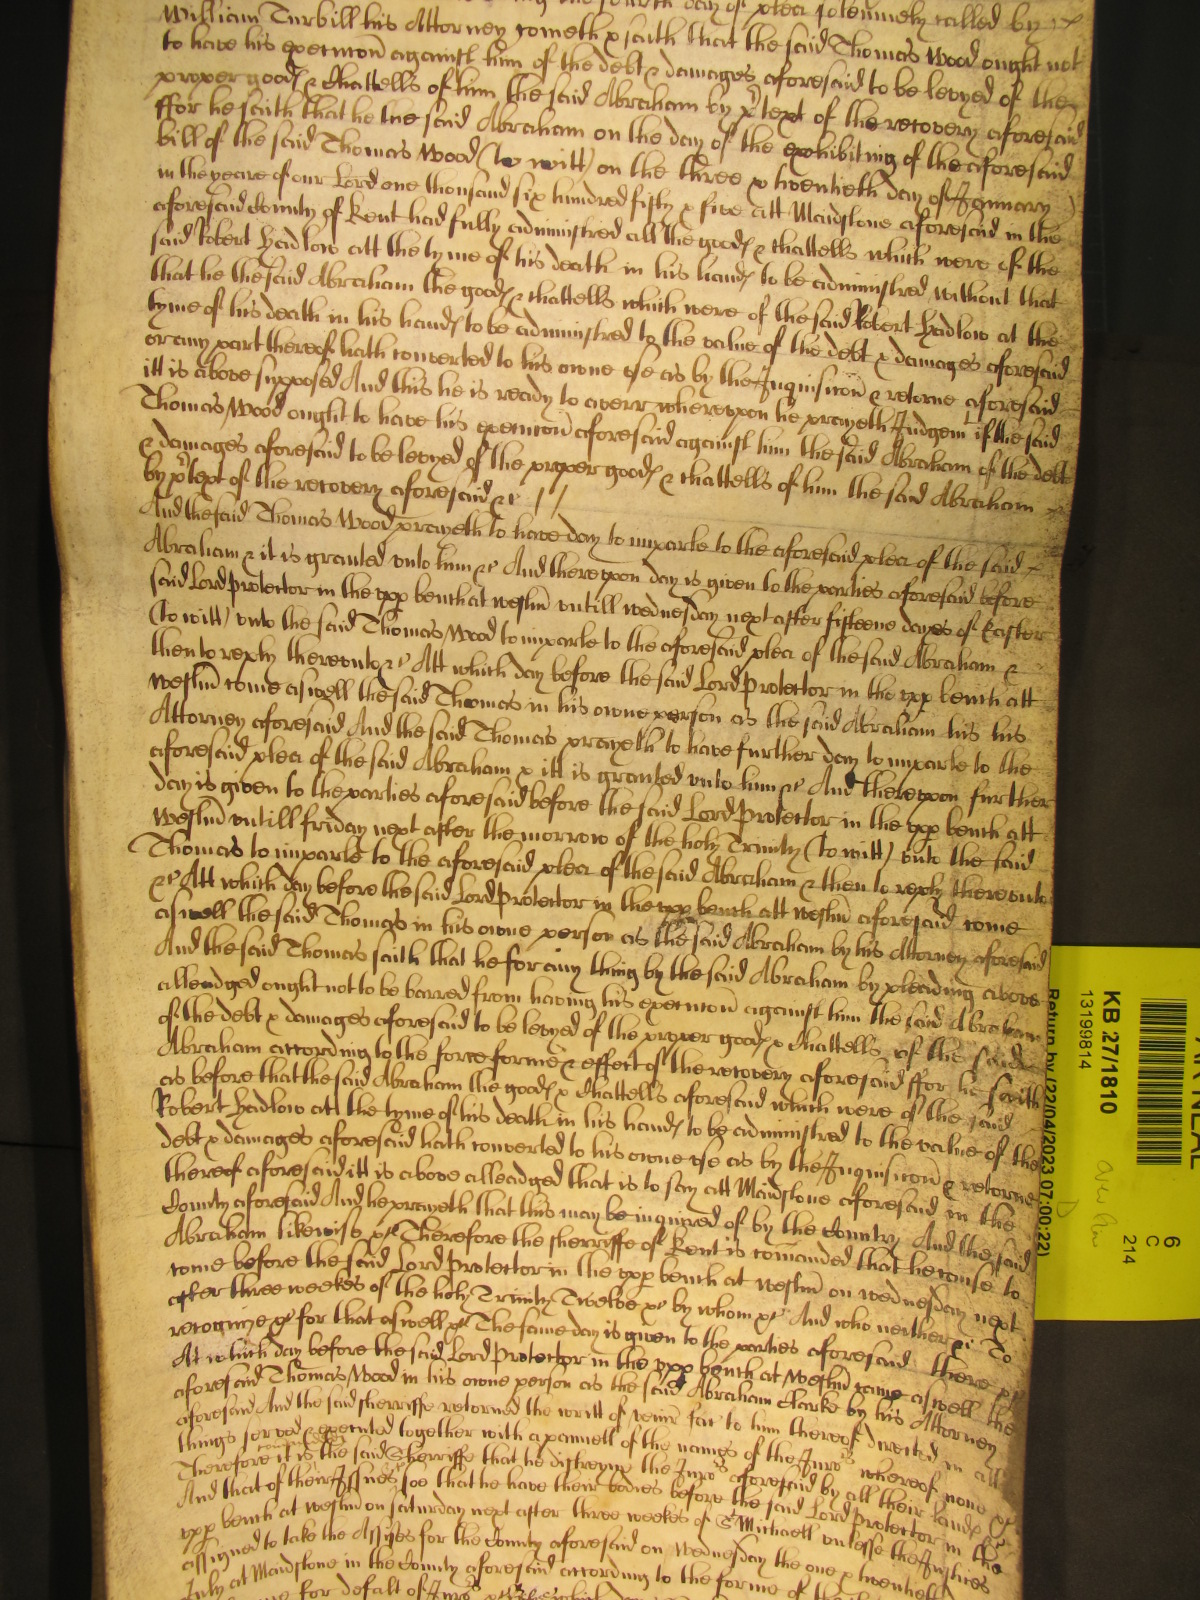 the fourth day of plea solemnely called by
William Turbill his Attorney cometh & saith that the said Thomas Wood ought not
to have his execucon against him of the debt & damages aforesaid to be levyed of the
proper goods & Chattells of him the said Abraham by ptext of the recovery aforesaid
ffor he saith that he the said Abraham on the day of the exhibiting of the aforesaid
bill of the said Thomas Wood (to witt) on the three & twentieth day of January
in the yeare of our Lord one thousand six hundred fifty & five att Maidstone aforesaid in the
aforesaid County of Kent had fully administred all the goods & chattells which were of the
said Robert Hadlow att the tyme of his death in his hands to be administred without that
that he the said Abraham the goods & chattells which were of the said Robert Hadlow at the
tyme of his death in his hands to be administred to the value of the debt & damages aforesaid
or any part thereof hath converted to his owne use as by the Inquisicon & retorne aforesaid
itt is above supposed And this he is ready to averr whereupon he prayeth Judgem if the said
Thomas Wood ought to have his execucon aforesaid against him the said Abraham of the debt
& damages aforesaid to be levyed of the proper goods & chattells of him the said Abraham
by ptext of the recovery aforesaid &c
And the said Thomas Wood prayeth to have day to imparle to the aforesaid plea of the said
Abraham & it is granted unto him &c And thereupon day is given to the parties aforesaid before
said Lord Protector in the upp bench at Westm untill Wednesday next after fifteene dayes of Easter
(to witt) unto the said Thomas Wood to imparle to the aforesaid plea of the said Abraham &
then to reply thereunto &c Att which day before the said Lord Protector in the upp bench att
Westm come aswell the said Thomas in his owne person as the said Abraham his his
Attorney aforesaid And the said Thomas prayeth to have further day to imparle to the
aforesaid plea of the said Abraham & itt is granted unto him &c And thereupon further
day is given to the parties aforesaid before the said Lord Protector in the upp bench att
Westm untill friday next after the morrow of the holy Trinity (to witt) unto the said
Thomas to imparle to the aforesaid plea of the said Abraham & then to reply thereunto
&c Att which day before the said Lord Protector in the upp bench att Westm aforesaid come
aswell the said Thomas in his owne person as the said Abraham by his Attorney aforesaid
And the said Thomas saith that he for any thing by the said Abraham by pleading above
alleadged ought not to be barred from having his execucon against him the said Abraham
of the debt & damages aforesaid to be levyed of the proper goods & Chattells of the said
Abraham according to the force forme & effect of the recovery aforesaid ffor he saith
as before that the said Abraham the goods & Chattells aforesaid which were of the said
Robert Hadlow att the tyme of his death in his hands to be administred to the value of the
debt & damages aforesaid hath converted to his owne use as by the Inquisicon & retorne
thereof aforesaid itt is above alleadged that is to say att Maidstone aforesaid in the
County aforesaid And he prayeth that this may be inquired of by the Country And the said
Abraham likewise &c Therefore the sherriffe of Kent is comanded that he cause to
come before the said Lord Protector in the upp bench at Westm on Wednesday next
after three weekes of the holy Trinity Twelve &c by whom &c And who neither &c To
recognize &c for that aswell &c The same day is given to the parties aforesaid there &c
At which day before the said Lord Protector in the upp bench at Westm came aswell the
aforesaid Thomas Wood in his owne person as the said Abraham Clarke by his Attorney
aforesaid And the said sherriffe retorned the writt of venire fac to him thereof directed in all
things served & executed together with a pannell of the names of the Jurors whereof none &c
Therefore it is comanded the said Sherriffe that he distreyne the Jurors aforesaid by all their lands &c
And that of their Issues &c soe that he have their bodies before the said Lord Protector in the
upp bench at Westm on saturday next after three weekes of St Michaell unlesse the Justices
assigned to take the Assizes for the County aforesaid on Wednesday the one & twentieth
July at Maidstone in the County aforesaid according to the forme of the
for defalt of Jurors
KB 27/1810
13199814
Return by (22/04/2023 07:00:22)
6
C
214